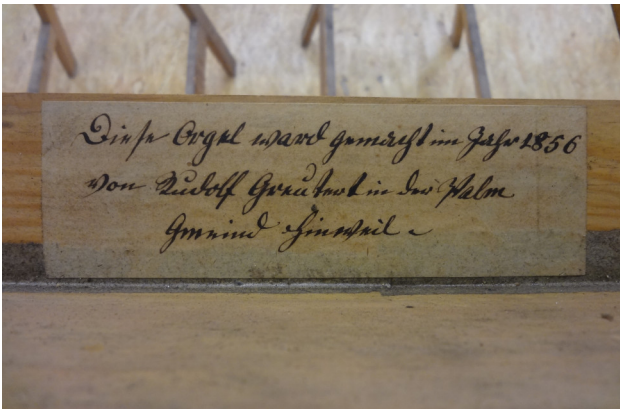 Diese Orgel ward gemacht im Jahr 1856
von Rudolf Greutert in der Palm
Gmeind Hinweil